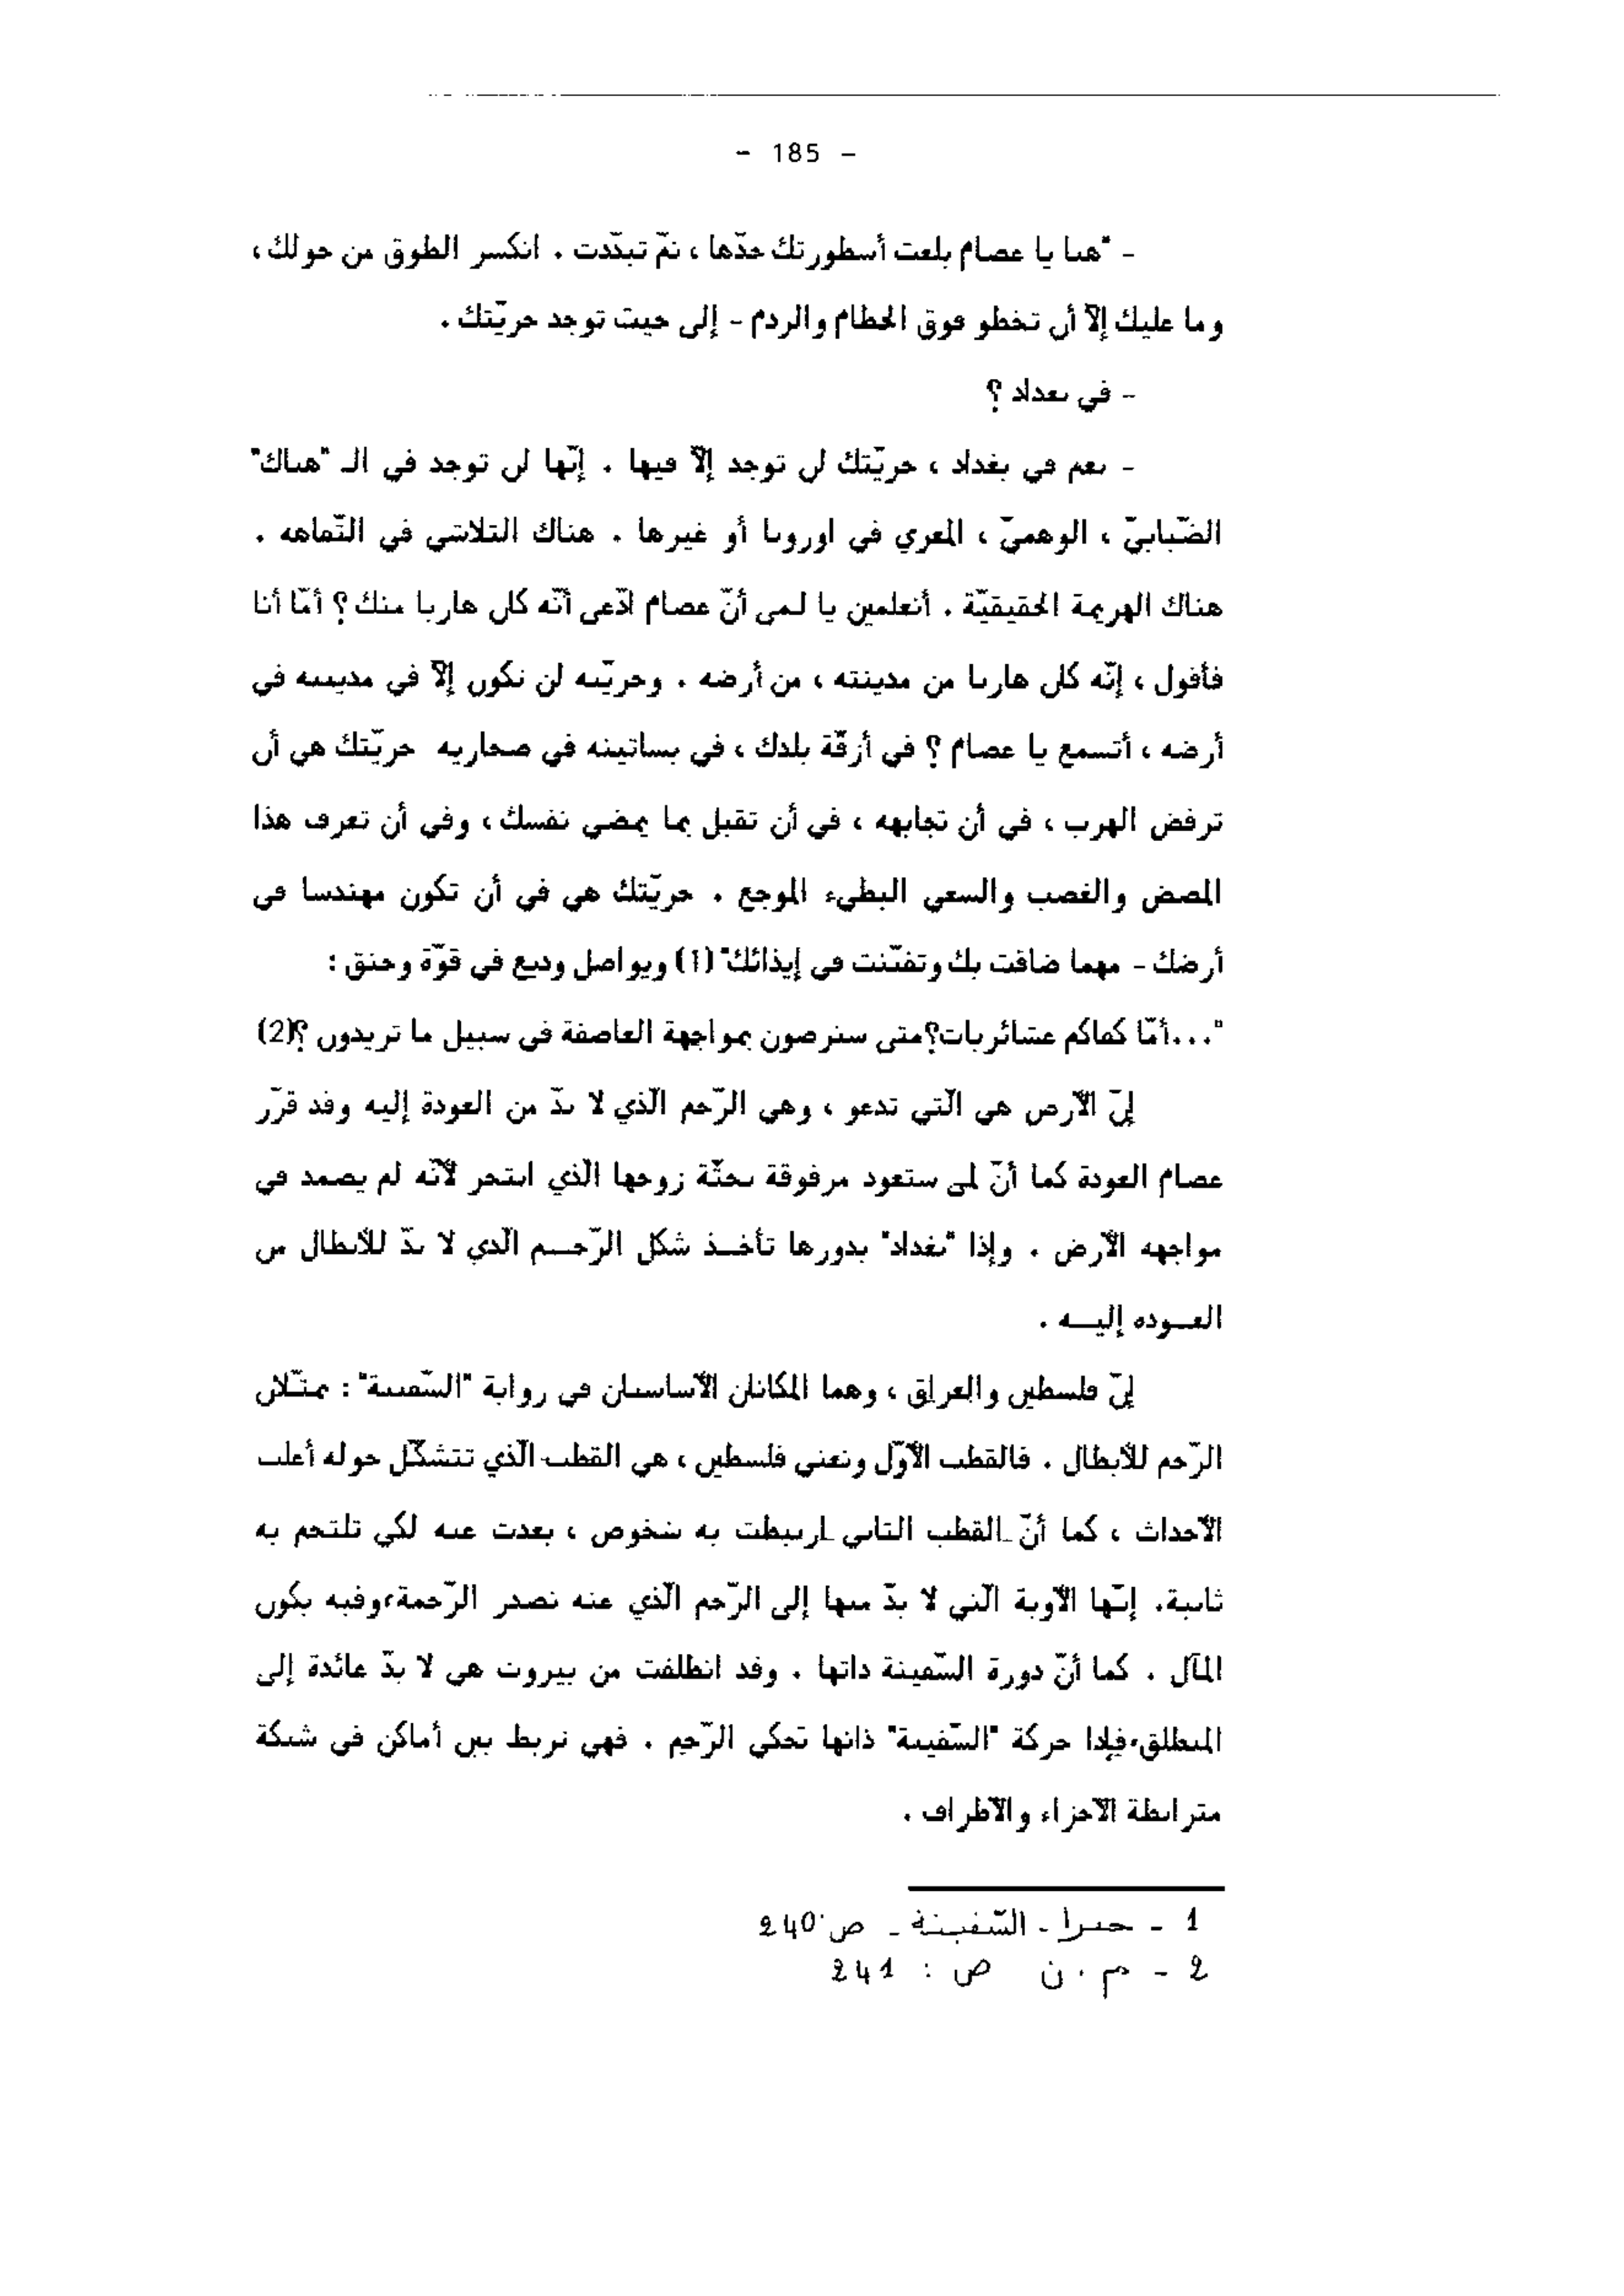 - 185 -
- "هنا يا عصام بلغت أسطورتك حدّها ، ثمّ تبدّدت . انكسر الطوق من حولك ،
وما عليك إلاّ أن تخطو فوق الحطام والردم - إلى حيث توجد حريّتك .
- في بغداد ؟
- نعم في بغداد ، حريّتك لن توجد إلاّ فيها . إنّها لن توجد في الـ "هناك"
الضّبابيّ ، الوهميّ ، المغري في اوروبا أو غيرها . هناك التلاشي في التّفاهة .
هناك الهزيمة الحقيقيّة . أتعلمين يا لمى أنّ عصام ادّعى أنّه كان هاربا منك ؟ أمّا أنا
فأقول ، إنّه كان هاربا من مدينته ، من أرضه . وحريّته لن تكون إلاّ في مدينته في
أرضه ، أتسمع يا عصام ؟ في أزقّة بلدك ، في بساتينه في صحاريه حريّتك هي أن
ترفض الهرب ، في أن تجابهه ، في أن تقبل بما يمضي نفسك ، وفي أن تعرف هذا
المضض والغضب والسعي البطيء الموجع . حريّتك هي في أن تكون مهندسا في
أرضك - مهما ضاقت بك وتفنّنت في إيذائك" (1) ويواصل وديع في قوّة وحنق :
"...أمّا كفاكم عشائريات؟متى سترضون بمواجهة العاصفة في سبيل ما تريدون ؟(2)
إنّ الأرض هي الّتي تدعو ، وهي الرّحم الّذي لا بدّ من العودة إليه وقد قرّر
عصام العودة كما أنّ لمى ستعود مرفوقة بجثّة زوجها الّذي انتحر لأنّه لم يصمد في
مواجهة الأرض . وإذا "بغداد" بدورها تأخـذ شكل الرّحـم الّذي لا بدّ للأبطال من
العـودة إليـه .
إنّ فلسطين والعراق ، وهما المكانان الأساسيان في رواية "السّفينة" : يمثّلان
الرّحم للأبطال . فالقطب الأوّل ونعني فلسطين ، هي القطب الّذي تتشكّل حوله أغلب
الأحداث ، كما أنّ القطب الثاني ارتبطت به شخوص ، بعدت عنه لكي تلتحم به
ثانية. إنّها الأوبة الّتي لا بدّ منها إلى الرّحم الّذي عنه تصدر الرّحمة،وفيه يكون
المآل . كما أنّ دورة السّفينة ذاتها . وقد انطلقت من بيروت هي لا بدّ عائدة إلى
المنطلق،فإذا حركة "السّفينة" ذاتها تحكي الرّحم . فهي تربط بين أماكن في شبكة
مترابطة الأجزاء والأطراف .
1 - جبرا - السّفينة - ص 240
2 - م . ن ص : 241